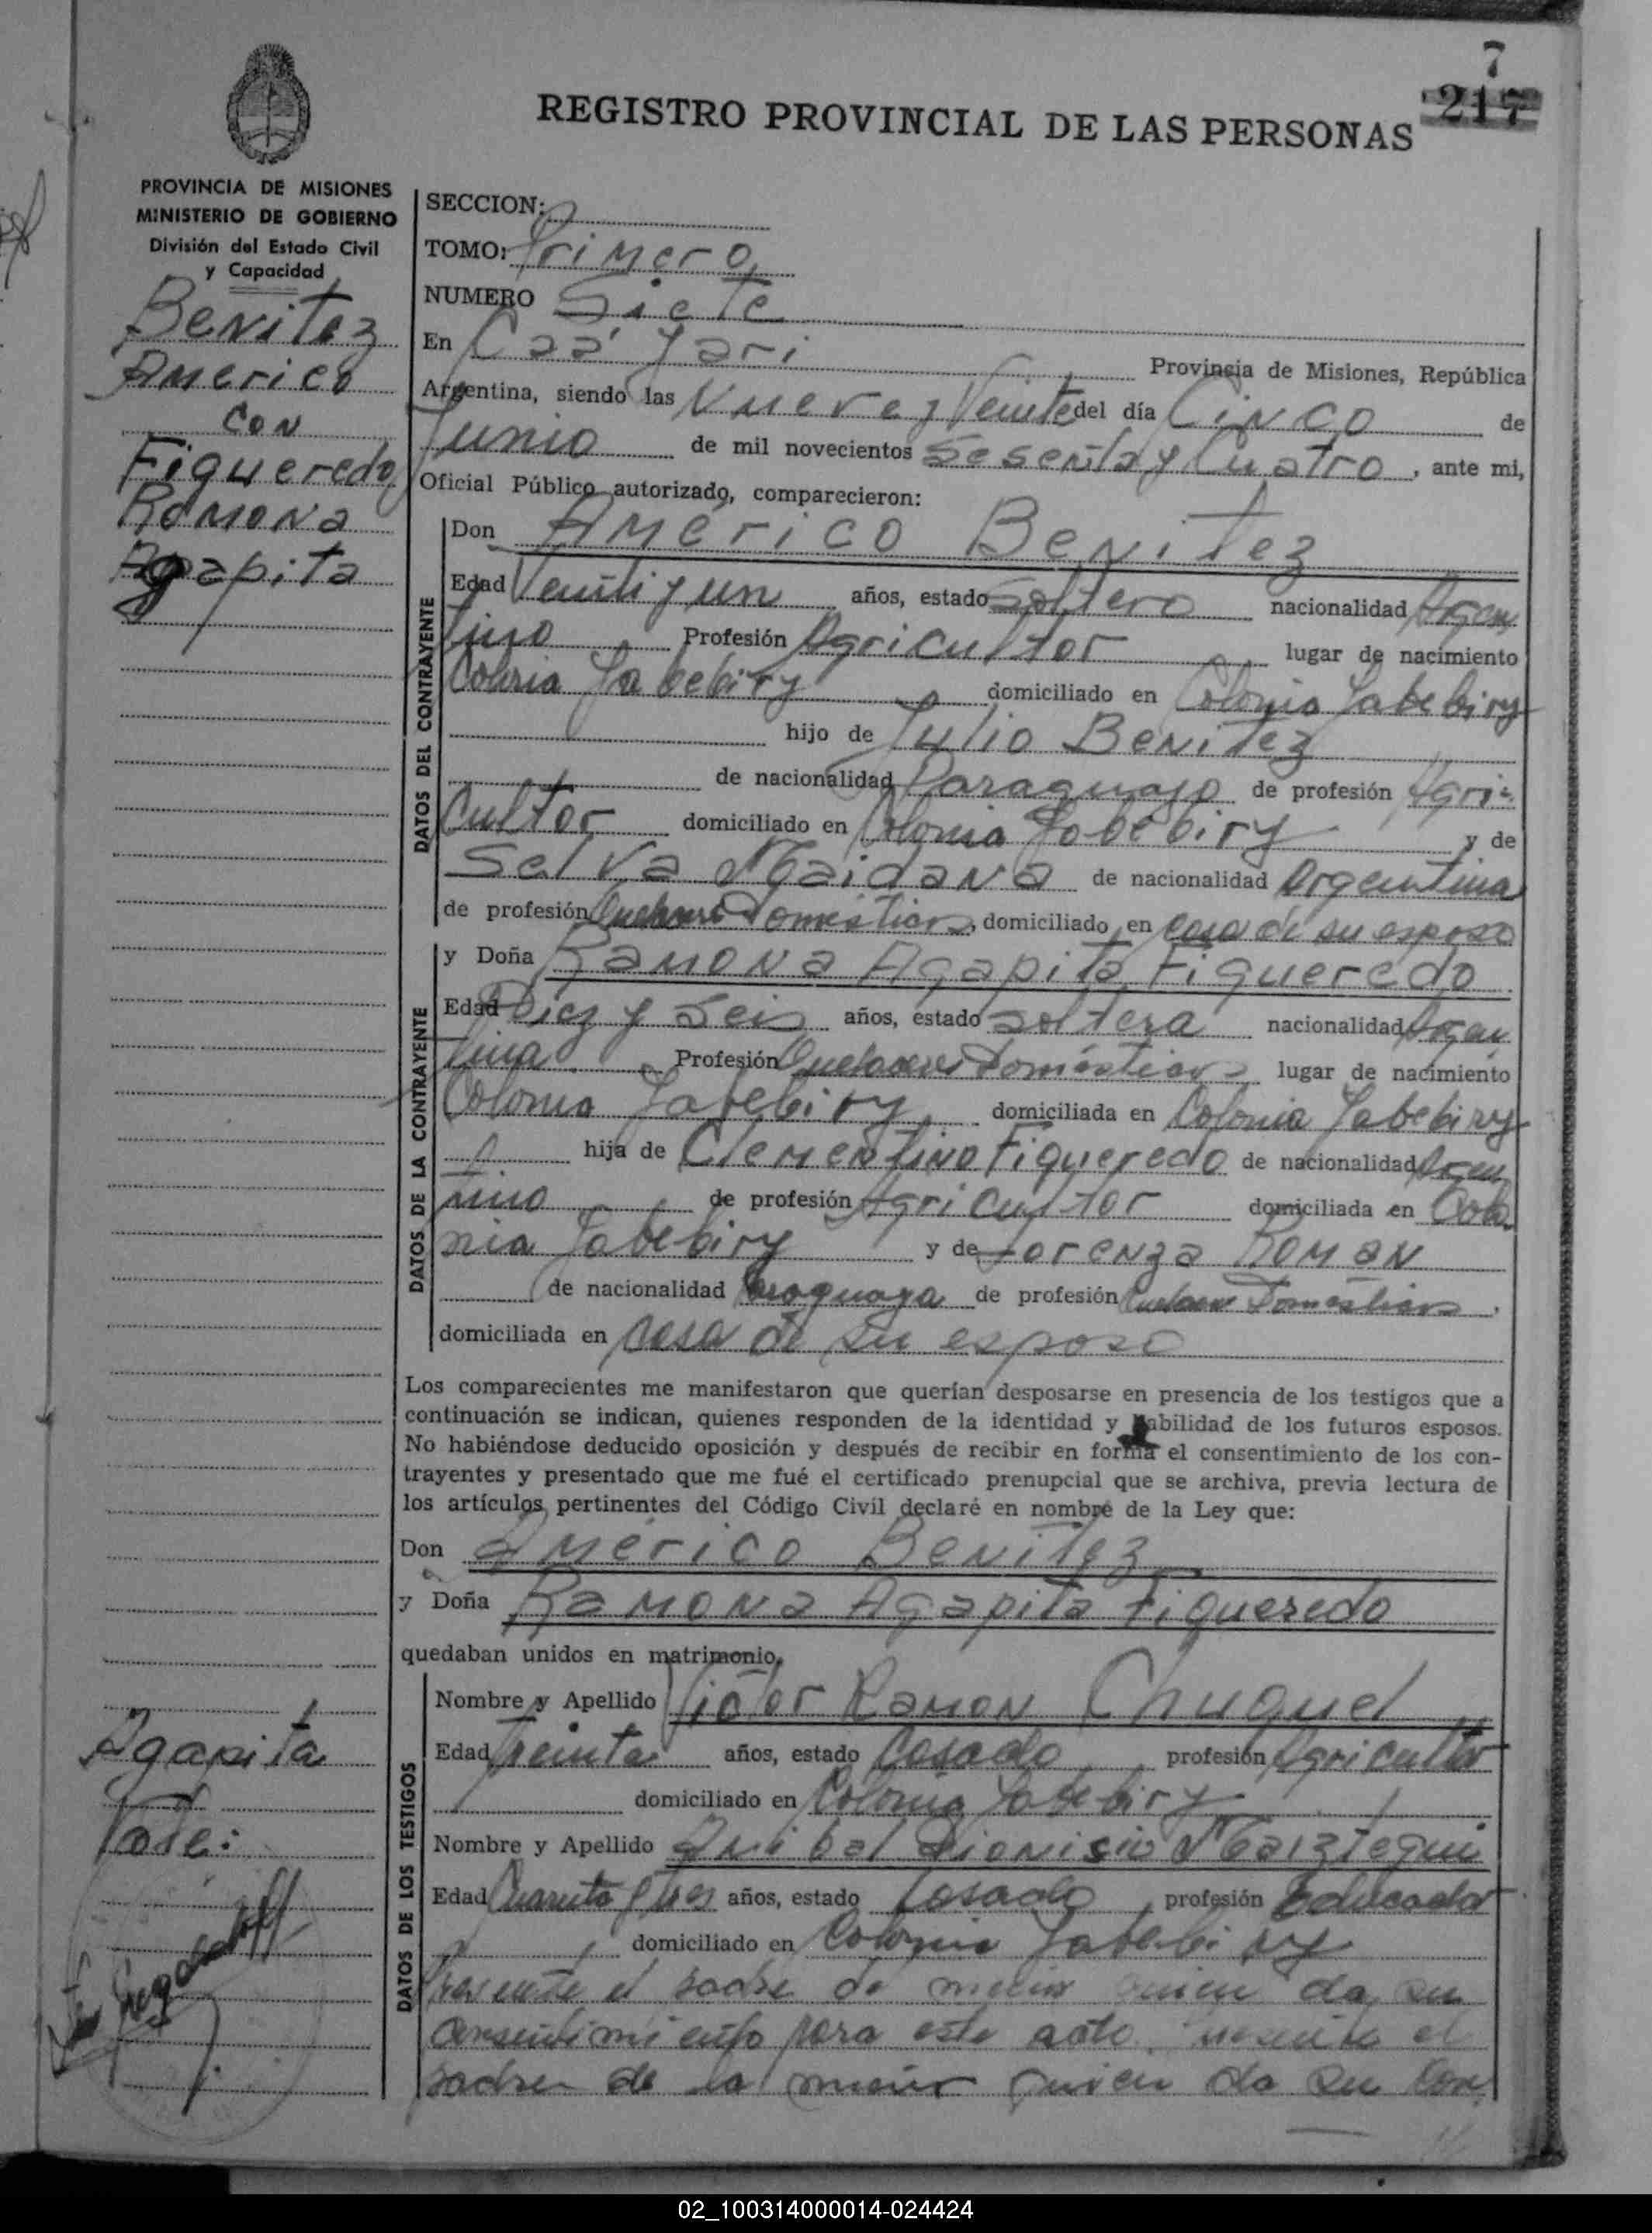 7
217
REGISTRO PROVINCIAL DE LAS PERSONAS
PROVINCIA DE MISIONES
MINISTERIO DE GOBIERNO
División del Estado Civil
y Capacidad
Benitez
Americo
con
Figueredo
Ramona
Agapita
SECCION:
TOMO: Primero
NUMERO Siete
En Caá Yari Provincia de Misiones, República
Argentina, siendo las Nueve y Veinte del día Cinco de
Junio de mil novecientos Sesenta y Cuatro, ante mi,
Oficial Público autorizado, comparecieron:
DATOS DEL CONTRAYENTE
Don Américo Benitez
Edad Veinti y un años, estado soltero nacionalidad Argen
tino Profesión Agricultor lugar de nacimiento
Colonia Yabebiry domiciliado en Colonia Yabebiry
hijo de Julio Benitez
de nacionalidad Paraguayo de profesión Agri-
cultor domiciliado en Colonia Yabebiry y de
Selva Maidana de nacionalidad Argentina
de profesión Quehaceres Domésticos, domiciliado en casa de su esposo
DATOS DE LA CONTRAYENTE
y Doña Ramona Agapita Figueredo
Edad Diez y Seis años, estado soltera nacionalidad Argen
tina Profesión Quehaceres Domésticos lugar de nacimiento
Colonia Yabebiry domiciliada en Colonia Yabebiry
hija de Clementino Figueredo de nacionalidad Argen
tino de profesión Agricultor domiciliada en Colo
nia Yabebiry y de Lorenza Roman
de nacionalidad Paraguaya de profesión Quehaceres Domésticos.
domiciliada en casa de su esposo
Los comparecientes me manifestaron que querían desposarse en presencia de los testigos que a
continuación se indican, quienes responden de la identidad y habilidad de los futuros esposos.
No habiéndose deducido oposición y después de recibir en forma el consentimiento de los con-
trayentes y presentado que me fué el certificado prenupcial que se archiva, previa lectura de
los artículos pertinentes del Código Civil declaré en nombre de la Ley que:
Don Américo Benitez
y Doña Ramona Agapita Figueredo
quedaban unidos en matrimonio.
DATOS DE LOS TESTIGOS
Nombre y Apellido Victor Ramon Chuquel
Edad treinta años, estado Casado profesión Agricultor
domiciliado en Colonia Yabebiry
Nombre y Apellido Anibal Dionisio Maiztegui
Edad Cuarenta y tres años, estado Casado, profesión Educador
domiciliado en Colonia Yabebiry
Presente el padre de menor quien da su
consentimiento para este acto. presente el
padre de la menor quien da su con
Agapita
Vale:
02_100314000014-024424